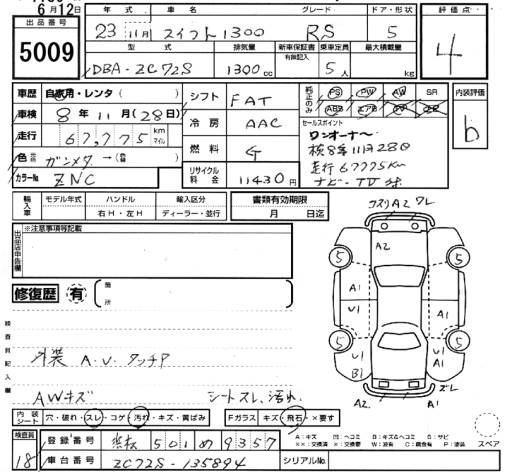 6月12日
出品番号
5009
年式 車名 グレード ドア・形状
23 11月 スイフト1300 RS 5
型式 排気量 新車保証書 有無記入 乗車定員 最大積載量
DBA-ZC72S 1300cc 5人 kg
評価点
4
車歴 自家用・レンタ
車検 8年11月(28日)
走行 67,775 km マイル
色 ガンメタ→
カラーNo ZNC
シフト FAT
冷房 AAC
燃料 G
リサイクル料金 11430円
純正のみ PS PW AW SR
ABS エアB TV
セールスポイント
ワンオーナー
検8年11月28日
走行67775km
ナビ・TV
内装評価
b
輸入車 モデル年式 ハンドル 輸入区分
年 右H・左H ディーラー・並行
書類有効期限
月 日迄
出品店申告欄
※注意事項等記載
修復歴 有
箇所
検査員記入欄
外装 A.U.タッチP
AWキズ
シートスレ、汚れ
コスリA2 ワレ
A2
5 5
A1 A1
U1 U1
5 5
U1 U1
B1 A1
A2 A1 ズレ
スペア
内装シート 穴・破れ・スレ・コゲ・汚れ・キズ・黄ばみ
Fガラス キズ・飛石・×要す
A:キズ
検査員
18
登録番号 501 9357
車台番号 ZC72S-135894
シリアルNo.